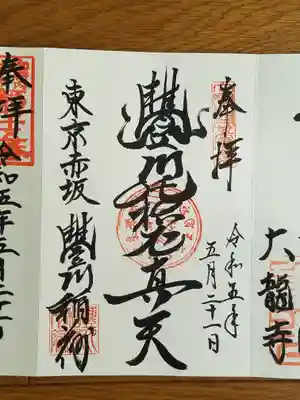 大龍寺
奉拝
令和五年
五月二十一日
豐川吒枳尼真天
東京赤坂
豐川稲荷
奉拝
令和五年五月二十一